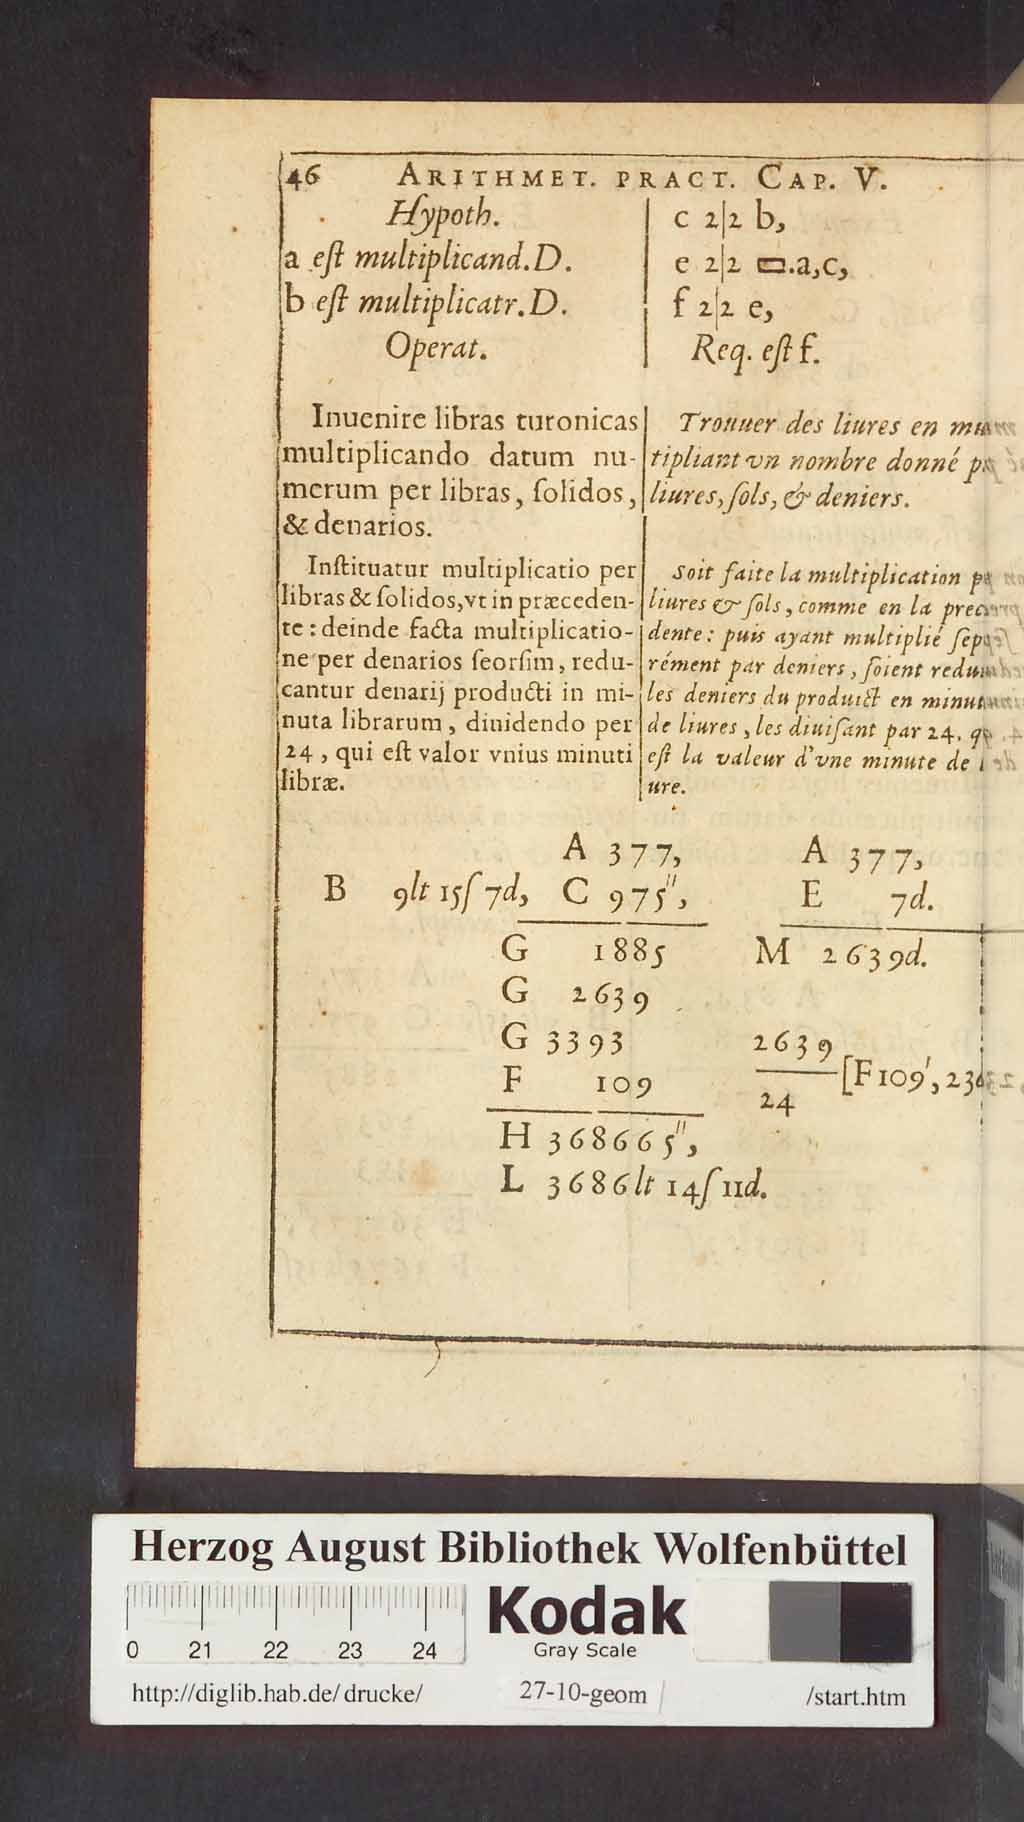 46 ARITHMET. PRACT. CAP. V.
Hypoth.
a eſt multiplicand.D.
b eſt multiplicatr.D.
Operat.
c 2|2 b,
e 2|2 ▭.a,c,
f 2|2 e,
Req. eſt f.
Inuenire libras turonicas
multiplicando datum nu-
merum per libras, ſolidos,
& denarios.
Trouuer des liures en
tipliant vn nombre donné
liures, ſols, & deniers.
Inſtituatur multiplicatio per
libras & ſolidos, vt in præceden-
te : deinde facta multiplicatio-
ne per denarios ſeorſim, redu-
cantur denarij producti in mi-
nuta librarum, diuidendo per
24, qui eſt valor vnius minuti
libræ.
Soit faite la multiplication
liures & ſols, comme en la
dente : puis ayant multiplié
rément par deniers, ſoient
les deniers du produict en
de liures, les diuiſant par 24.
eſt la valeur d'vne minute de
ure.
A 377,
B 9lt 15ſ 7d, C 975'',
G 1885
G 2639
G 3393
F 109
H 368665'',
L 3686lt 14ſ 11d.
A 377,
E 7d.
M 2639d.
2639
[F 109',
24
Herzog August Bibliothek Wolfenbüttel
0 21 22 23 24
Kodak
Gray Scale
http://diglib.hab.de/drucke/ 27-10-geom /start.htm